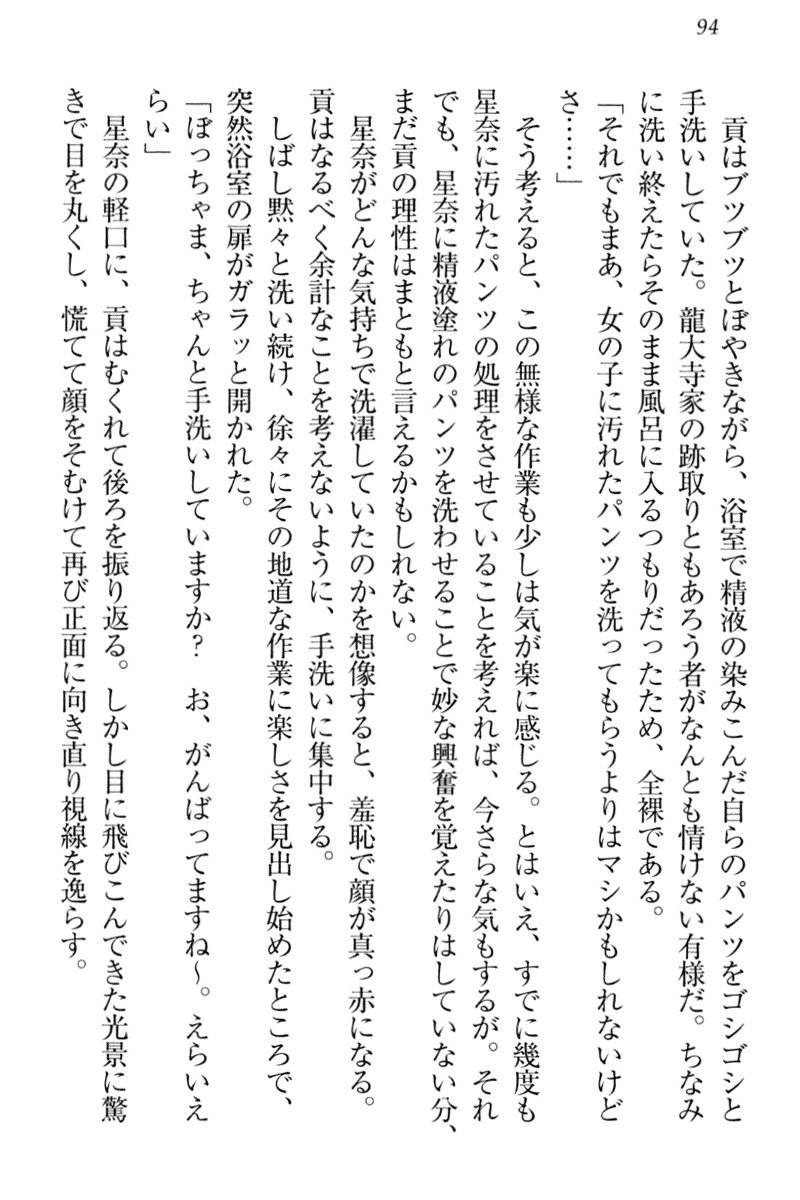 94
貢はブツブツとぼやきながら、浴室で精液の染みこんだ自らのパンツをゴシゴシと
手洗いしていた。龍大寺家の跡取りともあろう者がなんとも情けない有様だ。ちなみ
に洗い終えたらそのまま風呂に入るつもりだったため、全裸である。
「それでもまあ、女の子に汚れたパンツを洗ってもらうよりはマシかもしれないけど
さ……」
そう考えると、この無様な作業も少しは気が楽に感じる。とはいえ、すでに幾度も
星奈に汚れたパンツの処理をさせていることを考えれば、今さらな気もするが。それ
でも、星奈に精液塗れのパンツを洗わせることで妙な興奮を覚えたりはしていない分、
まだ貢の理性はまともと言えるかもしれない。
星奈がどんな気持ちで洗濯していたのかを想像すると、羞恥で顔が真っ赤になる。
貢はなるべく余計なことを考えないように、手洗いに集中する。
しばし黙々と洗い続け、徐々にその地道な作業に楽しさを見出し始めたところで、
突然浴室の扉がガラッと開かれた。
「ぼっちゃま、ちゃんと手洗いしていますか？　お、がんばってますね～。えらいえ
らい」
星奈の軽口に、貢はむくれて後ろを振り返る。しかし目に飛びこんできた光景に驚
きで目を丸くし、慌てて顔をそむけて再び正面に向き直り視線を逸らす。